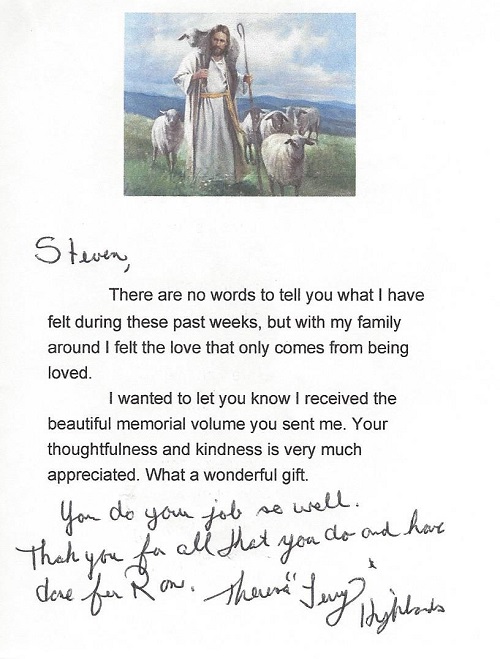 Steven,
There are no words to tell you what I have
felt during these past weeks, but with my family
around I felt the love that only comes from being
loved.
I wanted to let you know I received the
beautiful memorial volume you sent me. Your
thoughtfulness and kindness is very much
appreciated. What a wonderful gift.
You do your job so well.
Thank you for all that you do and have
done for Ron. Theresa "Terry"